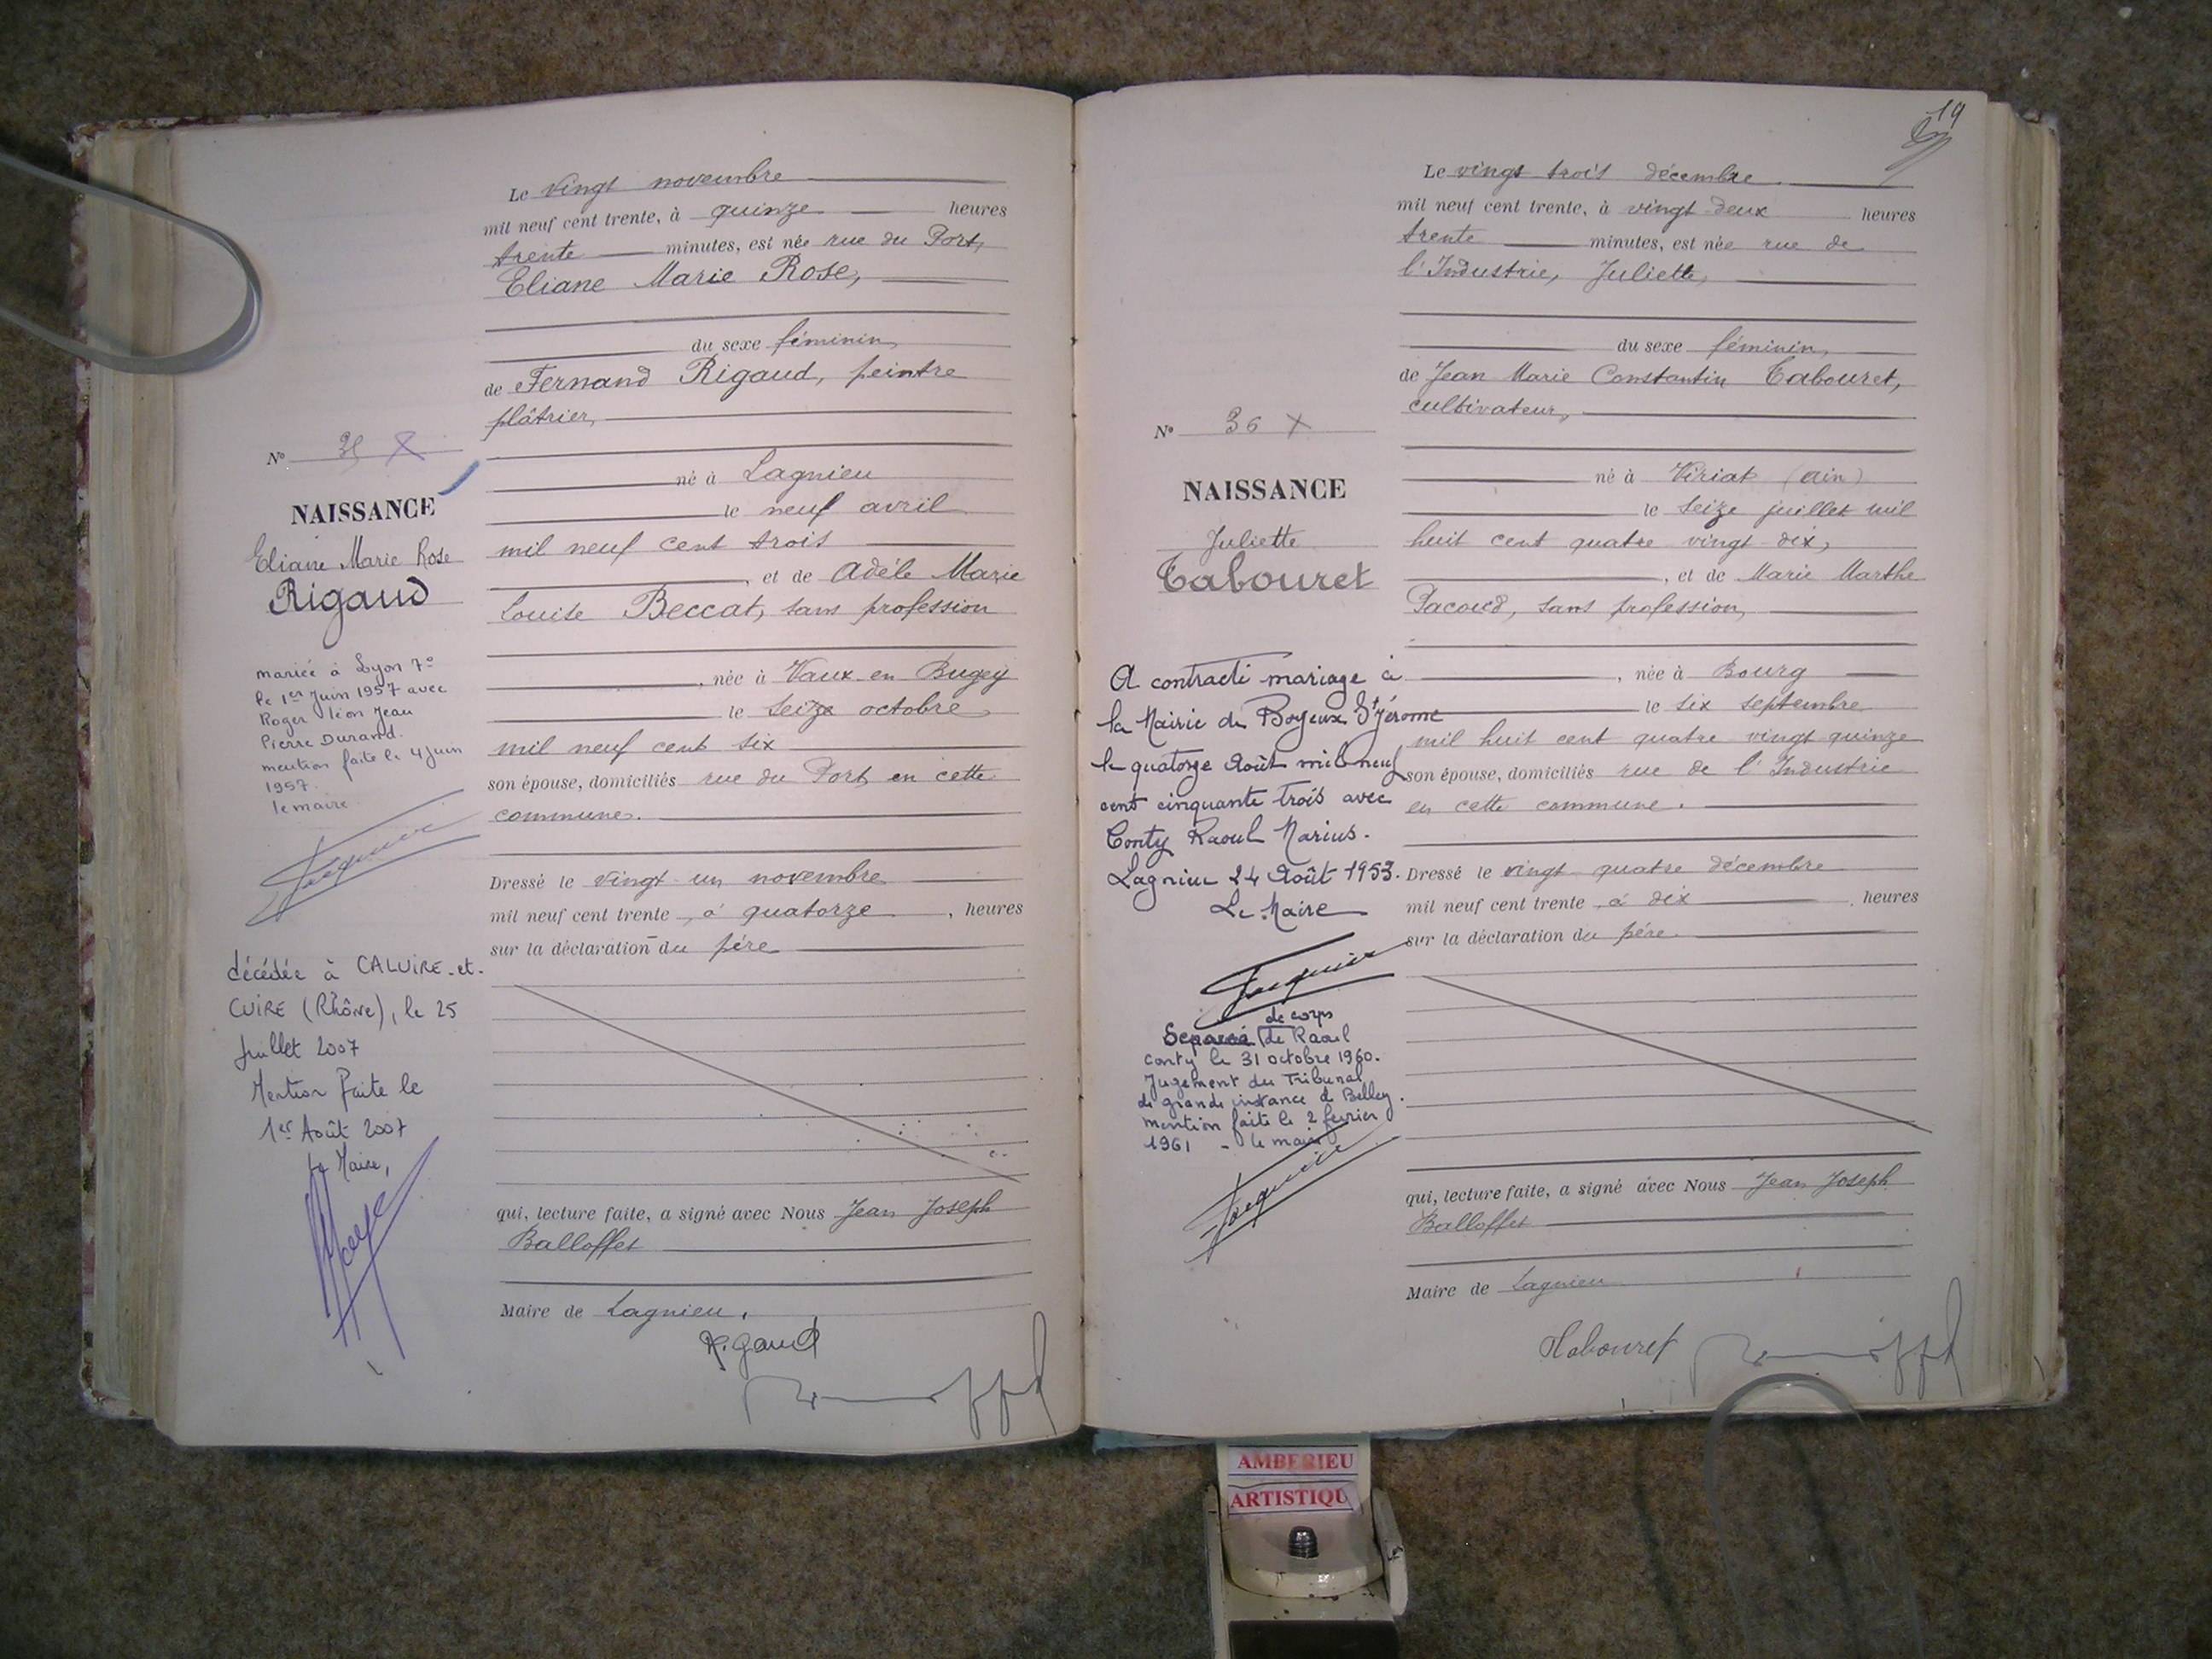 Le vingt novembre
mil neuf cent trente, à quinze heures
trente minutes, est née rue du Port,
Eliane Marie Rose,
du sexe féminin,
de Fernand Rigaud, peintre
plâtrier,
né à Lagnieu
le neuf avril
mil neuf cent trois
, et de Adèle Marie
Louise Beccat, sans profession
, née à Vaux en Bugey
le seize octobre
mil neuf cent six
son épouse, domiciliés rue du Port en cette
commune.
Dressé le vingt un novembre
mil neuf cent trente, à quatorze, heures
sur la déclaration du père
qui, lecture faite, a signé avec Nous Jean Joseph
Balloffet
Maire de Lagnieu.
Rigaud
N° 35
NAISSANCE
Eliane Marie Rose
Rigaud
mariée à Lyon 7e
le 1er Juin 1957 avec
Roger léon Jean
Pierre Durand.
mention faite le 4 juin
1957.
le maire
décédée à CALUIRE-et-
CUIRE (Rhône), le 25
Juillet 2007
Mention faite le
1er Août 2007
Le Maire,
19
Le vingt trois décembre
mil neuf cent trente, à vingt-deux heures
trente minutes, est née rue de
l'Industrie, Juliette,
du sexe féminin,
de Jean Marie Constantin Tabouret,
cultivateur,
né à Viriat (Ain)
le seize juillet mil
huit cent quatre vingt-dix,
, et de Marie Marthe
Pacoud, sans profession,
, née à Bourg
le six septembre
mil huit cent quatre vingt quinze
son épouse, domiciliés rue de l'Industrie
en cette commune.
Dressé le vingt quatre décembre
mil neuf cent trente, à dix, heures
sur la déclaration du père.
qui, lecture faite, a signé avec Nous Jean Joseph
Balloffet
Maire de Lagnieu
Tabouret
N° 36 X
NAISSANCE
Juliette
Tabouret
A contracté mariage à
la Mairie de Boyeux St Jérome
le quatorze Août mil neuf
cent cinquante trois avec
Conty Raoul Marius.
Lagnieu 24 Août 1953.
Le Maire
de corps
Separée de Raoul
Conty le 31 octobre 1960.
Jugement du Tribunal
de grande instance de Belley.
mention faite le 2 fevrier
1961 - le maire
AMBERIEU
ARTISTIQU